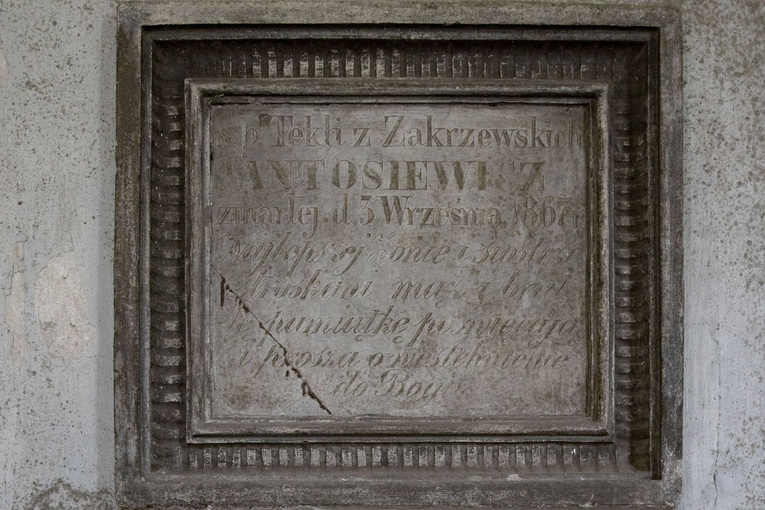 ś. pⁿ Tekli z Zakrzewskich
ANTOSIEWICZ
zmarłej. d. 3 Września. 1867 r
Najlepszej żonie i siostrze
Stroskani mąż i brat
tę pamiątkę poświęcają
i proszą o westchnienie
do Boga